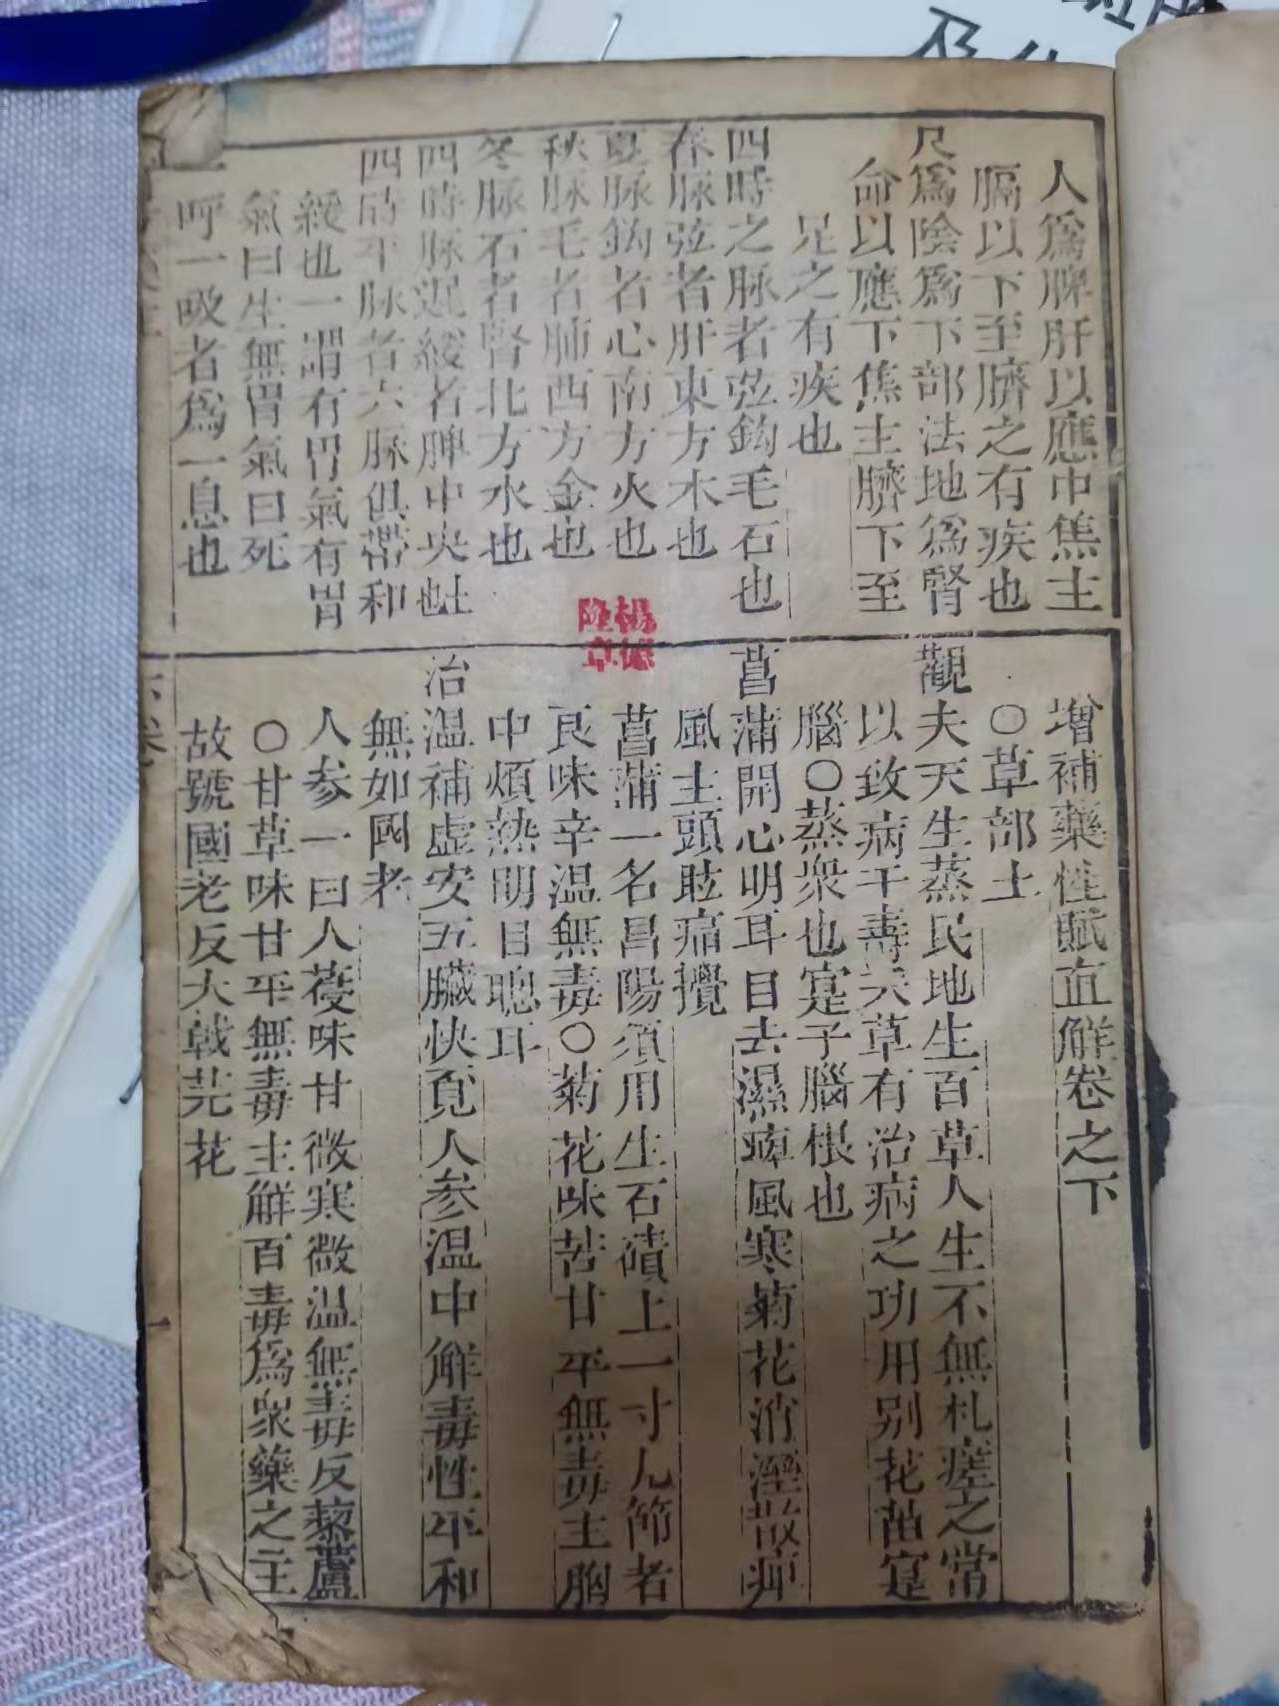 人爲脾肝以應中焦主
膈以下至臍之有疾也
尺爲陰爲下部法地爲腎
命以應下焦主臍下至
足之有疾也
四時之脉者弦鈎毛石也
春脉弦者肝東方木也
夏脉鈎者心南方火也
秋脉毛者肺西方金也
冬脉石者腎北方水也
四時脉遲緩者脾中央也
四時平脉者六脉俱帶和
緩也一謂有胃氣有胃
氣曰生無胃氣曰死
一呼一吸者爲一息也
增補藥性賦直解卷之下
○草部上
觀夫天生蒸民地生百草人生不無札瘥之常
以致病干壽夭草有治病之功用别花苗寔
腦○蒸衆也寔子腦根也
菖蒲開心明耳目去濕痺風寒菊花消溼散痺
風主頭眩痛攪
菖蒲一名昌陽須用生石磧上一寸九節者
良味辛温無毒○菊花味苦甘平無毒主胸
中煩熱明目聰耳
治温補虚安五臟快覔人参温中解毒性平和
無如國老
人参一曰人葠味甘微寒微温無毒反藜蘆
○甘草味甘平無毒主解百毒爲衆藥之主
故號國老反大戟芫花
下卷
一
楊德
隆章
及